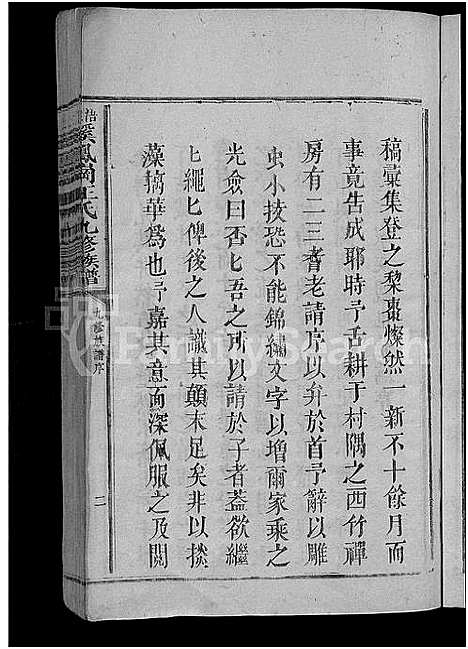 稿彙集登之黎棗燦然一新不十餘月而
事竟告成耶時予舌耕于村隅之西竹禪
房有二三耆老請序以弁於首予辭以雕
虫小技恐不能錦繡文字以增爾家乘之
光僉曰否匕吾之所以請於子者蓋欲繼
匕繩匕俾後之人識其顛末足矣非以掞
藻摛華爲也予嘉其意而深佩服之及閱
溪鳳岡王氏九修族譜
九修族譜序
二
FamilySearch